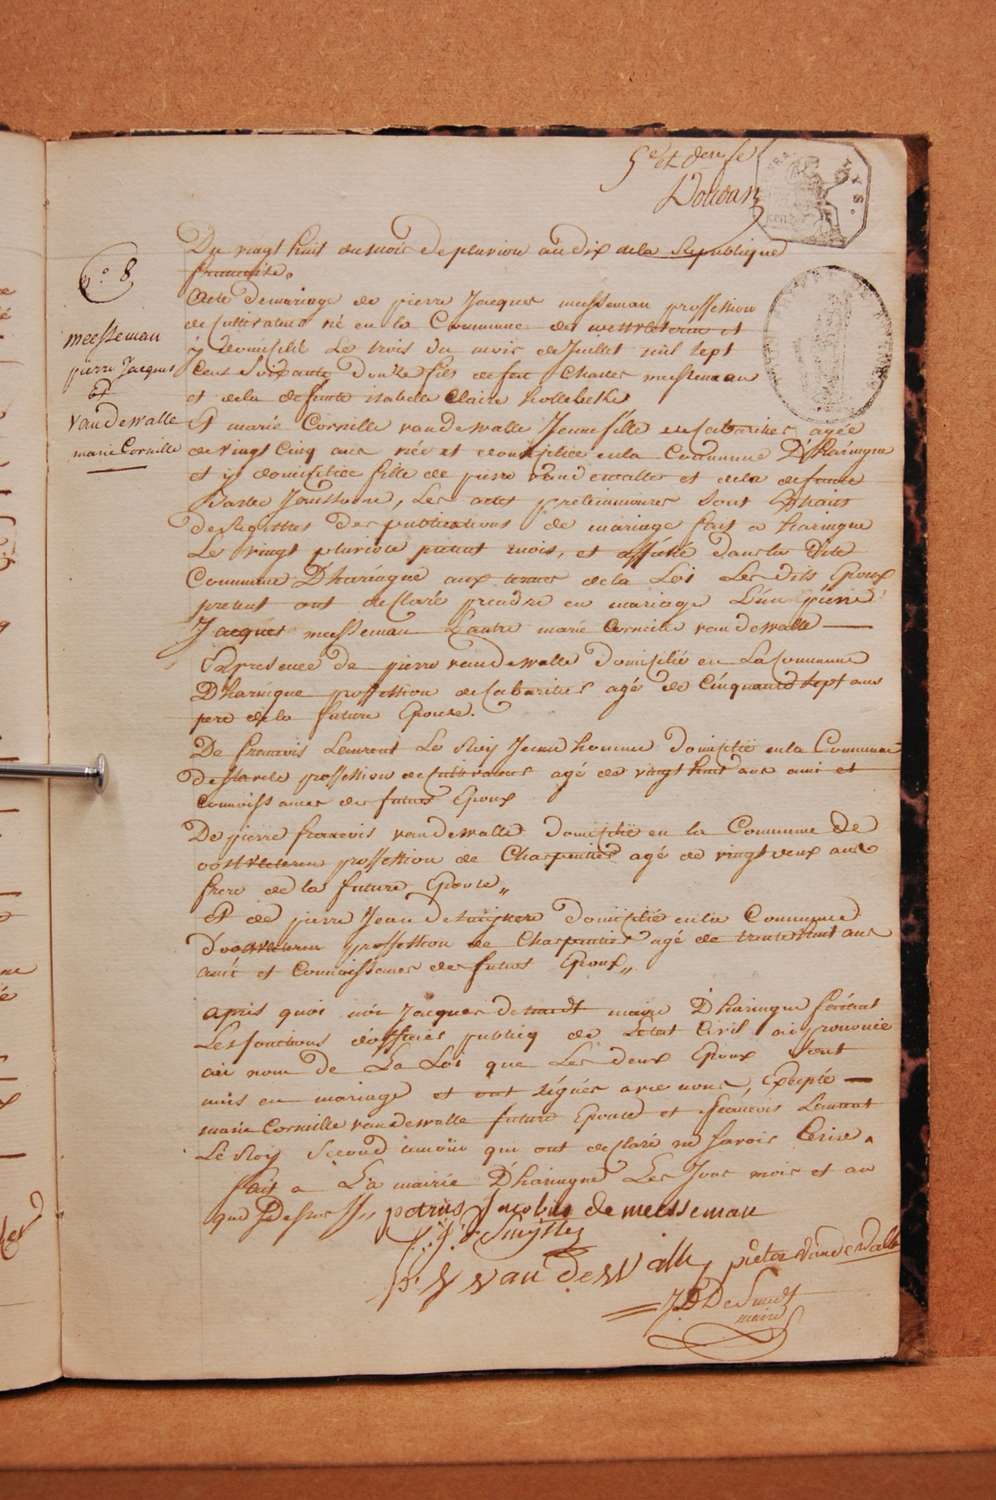 N.° 8
meesseman
pierre Jacques
et
vandewalle
marie Cornille
Du vingt huit du mois de pluviou an dix de la Republique
francaise.
Acte de mariage de pierre Jacques meesseman proffession
de cultivateur né en la Commune de westvleteren et
y domicilié le trois du mois de Juillet mil sept
Cent Soixante Douze fils de feu Charles meesseman
et de la defunte isabelle Claire hollebeke
Et marie Cornille vandewalle Jeune fille de Cabaritier agée
de vingt Cinq ans née et domiciliée en la Commune D'haringue
et y domiciliée fille de pierre vandewalle et de la defunte
les actes preliminaires Sont Extraits
des Registres des publications de mariage fait a haringue
Le vingt pluviose present mois, et affiché dans la dite
Commune D'haringue aux termes de la Loi Les dits Epoux
present ont declaré prendre en mariage L'un pierre
Jacques meesseman L'autre marie Cornille vandewalle
En presence de pierre vandewalle domicilié en La Commune
D'haringue proffession de Cabaritier agé de Cinquante Sept ans
pere de la future Epouse.
De francois Laurent Le Roy Jeune homme domicilié en la Commune
de Stavele proffession de Cultivateur agé de vingt huit ans ami et
connoissances des futurs Epoux
De pierre francois vandewalle domicilié en la Commune de
oostvleteren proffession de Charpentier agé de vingt deux ans
frere de la future Epouse,,
Et de pierre Jean domicilié en la Commune
D'oostvleteren proffession de Charpentier agé de trente ans
ami et Connoissances des futurs Epoux,,
apris quoi moi Jacques de smidt maire D'haringue faisant
Les fonctions d'officier publicq de L'etat Civil ai prononcé
au nom de La Loi que Les deux Epoux Sont
unis en mariage et ont signés avec nous, Exepté
marie Cornille vandewalle future Epouse et francois Laurent
Le Roy Second temoin qui ont declaré ne Savoir Ecrire.
fait a La mairie D'haringue Les Jour mois et an
que Dessus petrus Jacobus de meesseman
pieter vandewalle
p. f van de Walle
J. D De Smidt
maire